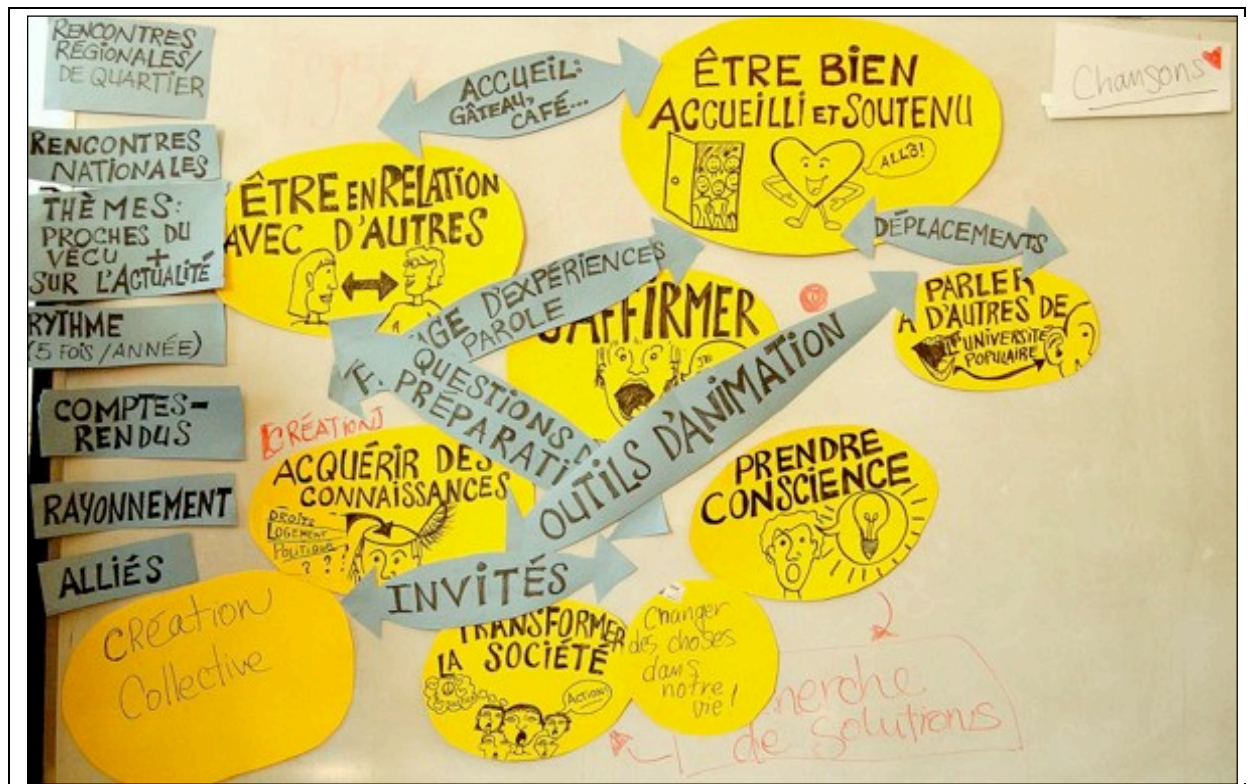 RENCONTRES
RÉGIONALES/
DE QUARTIER
RENCONTRES
NATIONALES
THÈMES:
PROCHES DU
VÉCU +
SUR L'ACTUALITÉ
RYTHME
(5 FOIS/ANNÉE)
COMPTES-
RENDUS
RAYONNEMENT
ALLIÉS
ACCUEIL:
GÂTEAU,
CAFÉ...
ÊTRE BIEN
ACCUEILLI ET SOUTENU
ALLÔ!
Chansons
ÊTRE EN RELATION
AVEC D'AUTRES
DÉPLACEMENTS
D'EXPÉRIENCES
PAROLE
S'AFFIRMER
PARLER
À D'AUTRES DE
L'UNIVERSITÉ
POPULAIRE
QUESTIONS
OUTILS D'ANIMATION
CRÉATIONS
ACQUÉRIR DES
CONNAISSANCES
DROITS
LOGEMENT
POLITIQUE
? ? ?
PRENDRE
CONSCIENCE
INVITÉS
TRANSFORMER
LA SOCIÉTÉ
Action!
Changer
des choses
dans
notre
vie!
Création
Collective
herche
de solutions